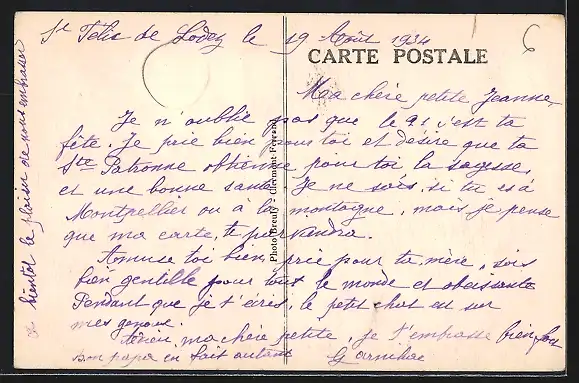 St Félix de Lodez le 19 Août 1934
CARTE POSTALE
Ma chère petite Jeanne,
Je n'oublie pas que le 21 c'est ta
fête. Je prie bien pour toi et désire que ta
Ste Patronne obtienne pour toi la sagesse,
et une bonne santé. Je ne sais, si tu es à
Montpellier ou à la montagne, mais je pense
que ma carte, te parviendra.
Amuse toi bien, prie pour ta mère, sois
bien gentille pour tout le monde et obéissante
Pendant que je t'écris, le petit chat est sur
mes genoux.
Adieu, ma chère petite, je t'embrasse bien, ton
bon papa en fait autant
à bientôt le plaisir de vous embrasser
Photo Breuly - Clermont-Ferrand
6